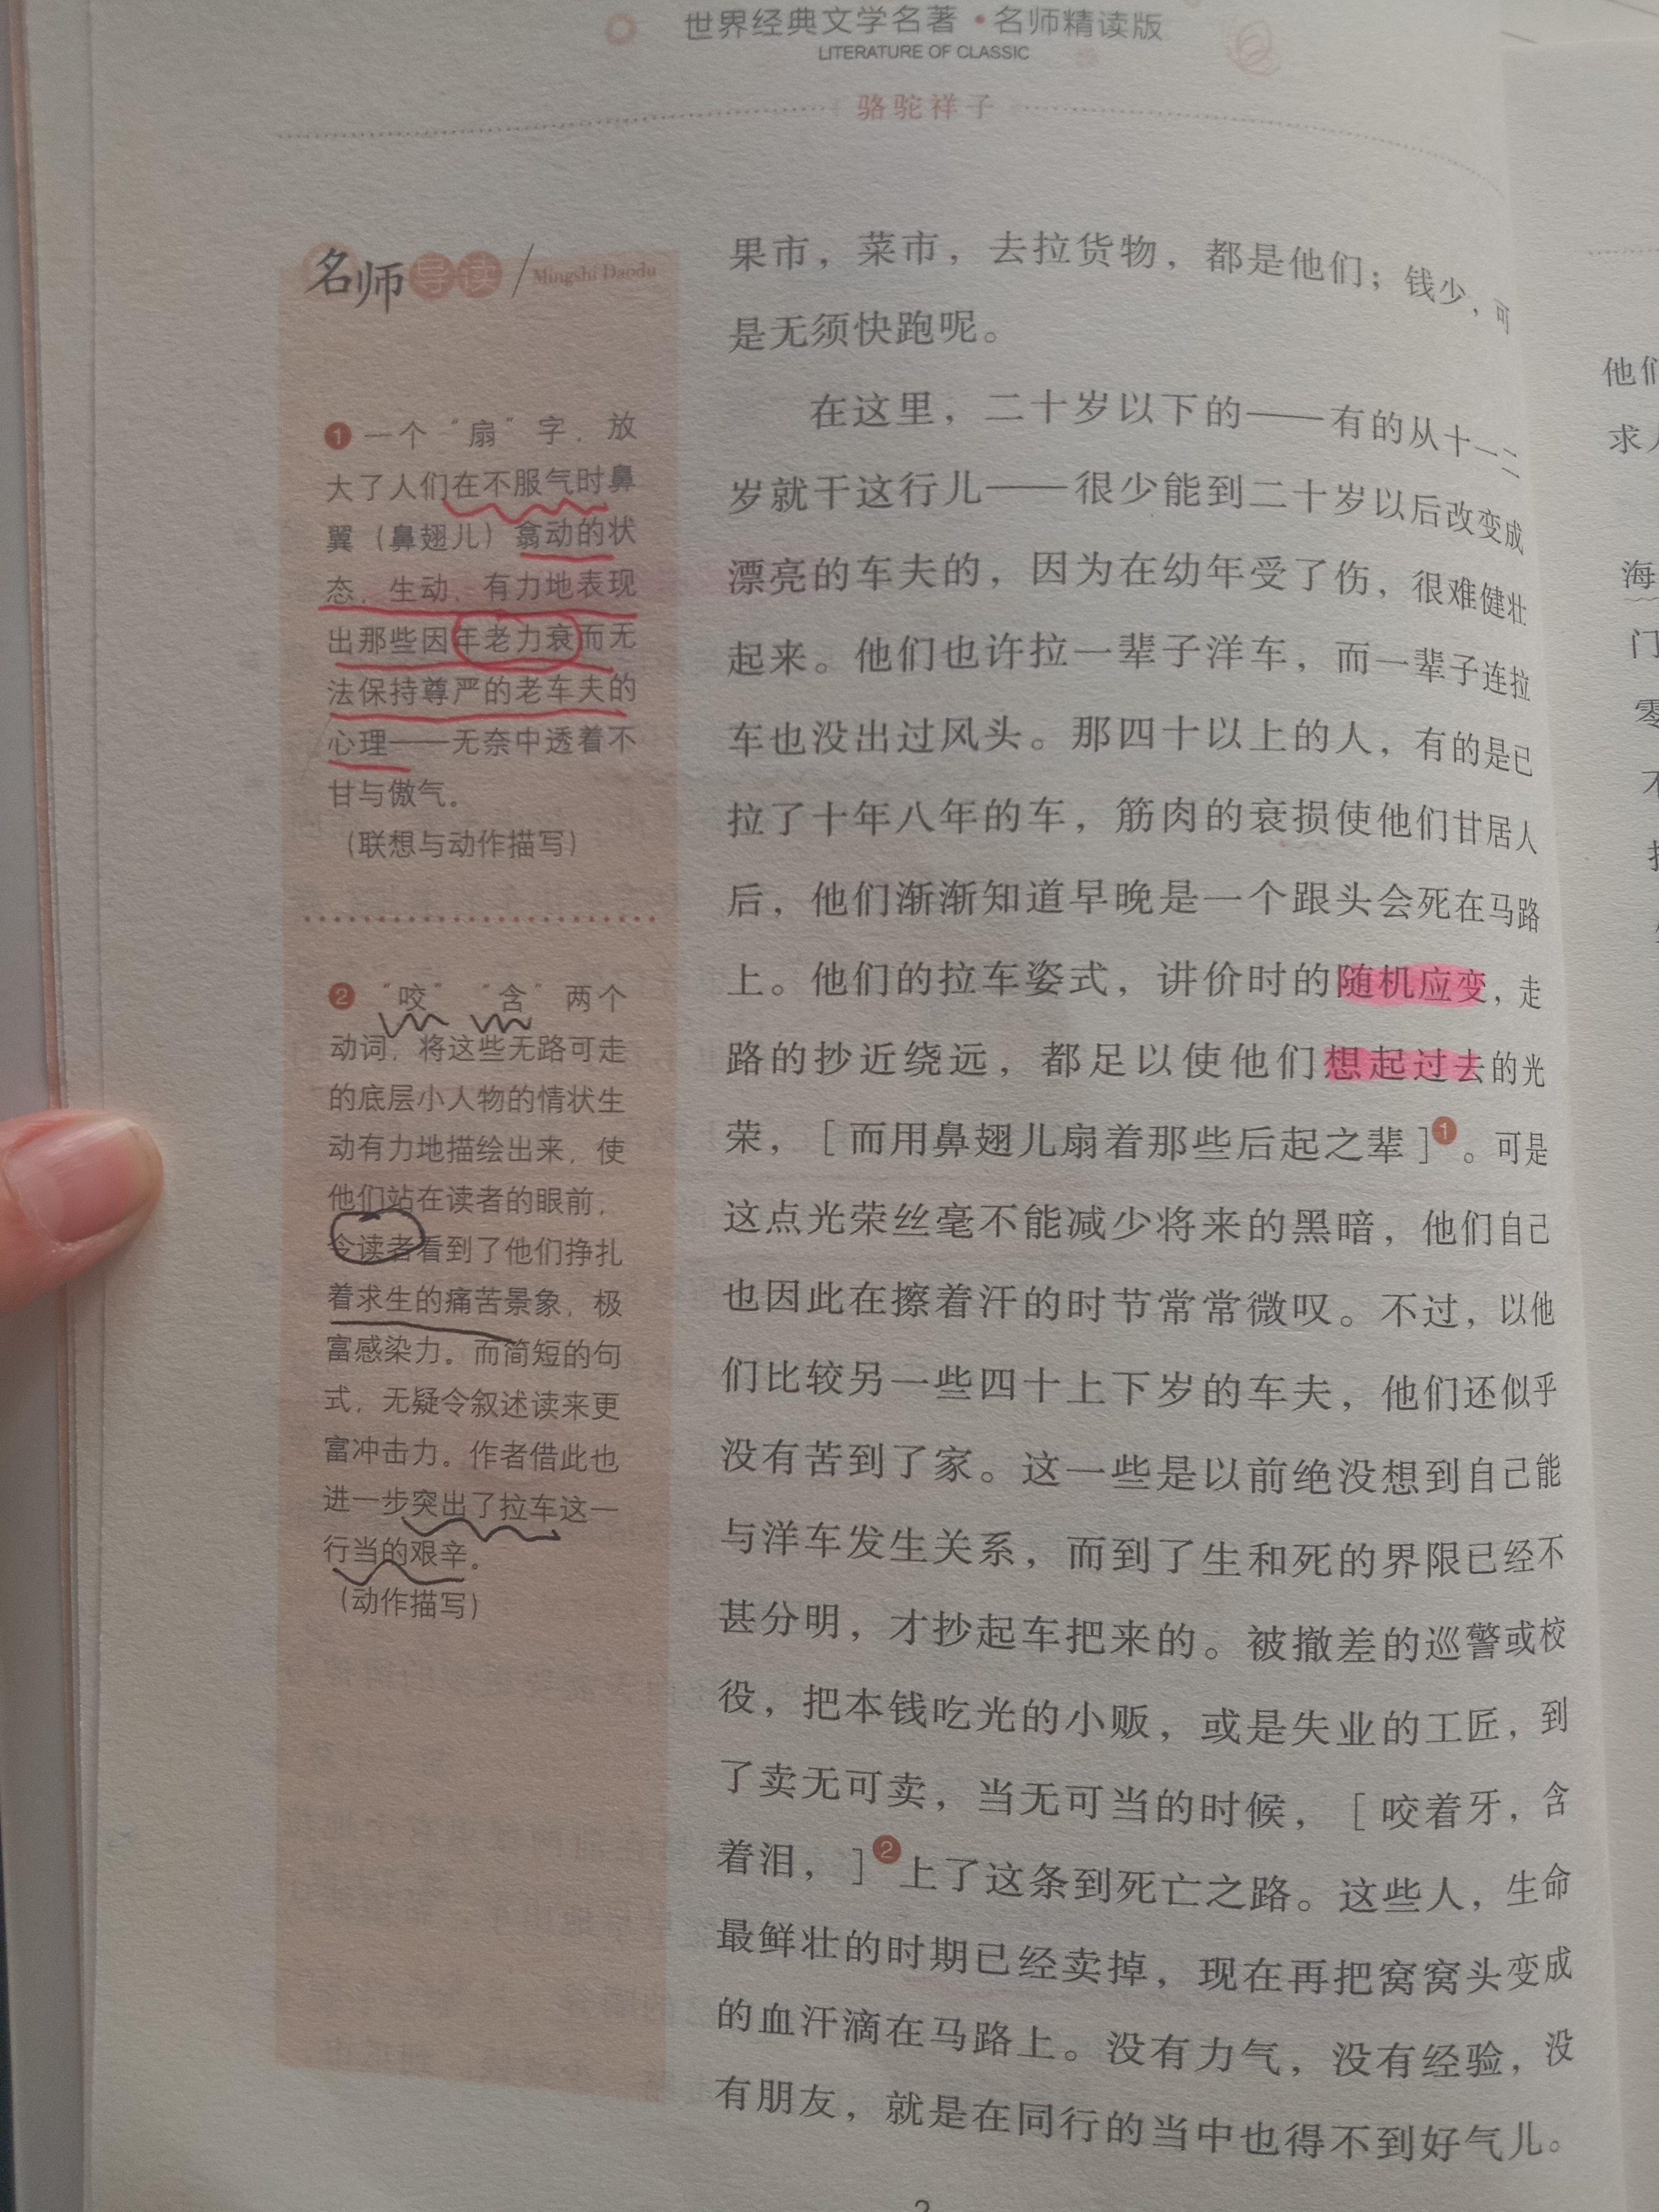 世界经典文学名著·名师精读版
LITERATURE OF CLASSIC
骆驼祥子
名师导读/Mingshi Daodu
❶一个“扇”字，放
大了人们在不服气时鼻
翼（鼻翅儿）翕动的状
态，生动、有力地表现
出那些因年老力衰而无
法保持尊严的老车夫的
心理——无奈中透着不
甘与傲气。
（联想与动作描写）
❷“咬”“含”两个
动词，将这些无路可走
的底层小人物的情状生
动有力地描绘出来，使
他们站在读者的眼前，
令读者看到了他们挣扎
着求生的痛苦景象，极
富感染力。而简短的句
式，无疑令叙述读来更
富冲击力。作者借此也
进一步突出了拉车这一
行当的艰辛。
（动作描写）
果市，菜市，去拉货物，都是他们；钱少，可
是无须快跑呢。
在这里，二十岁以下的——有的从十一二
岁就干这行儿——很少能到二十岁以后改变成
漂亮的车夫的，因为在幼年受了伤，很难健壮
起来。他们也许拉一辈子洋车，而一辈子连拉
车也没出过风头。那四十以上的人，有的是已
拉了十年八年的车，筋肉的衰损使他们甘居人
后，他们渐渐知道早晚是一个跟头会死在马路
上。他们的拉车姿式，讲价时的随机应变，走
路的抄近绕远，都足以使他们想起过去的光
荣，［而用鼻翅儿扇着那些后起之辈］❶。可是
这点光荣丝毫不能减少将来的黑暗，他们自己
也因此在擦着汗的时节常常微叹。不过，以他
们比较另一些四十上下岁的车夫，他们还似乎
没有苦到了家。这一些是以前绝没想到自己能
与洋车发生关系，而到了生和死的界限已经不
甚分明，才抄起车把来的。被撤差的巡警或校
役，把本钱吃光的小贩，或是失业的工匠，到
了卖无可卖，当无可当的时候，［咬着牙，含
着泪，］❷上了这条到死亡之路。这些人，生命
最鲜壮的时期已经卖掉，现在再把窝窝头变成
的血汗滴在马路上。没有力气，没有经验，没
有朋友，就是在同行的当中也得不到好气儿。
他们
海
门
零